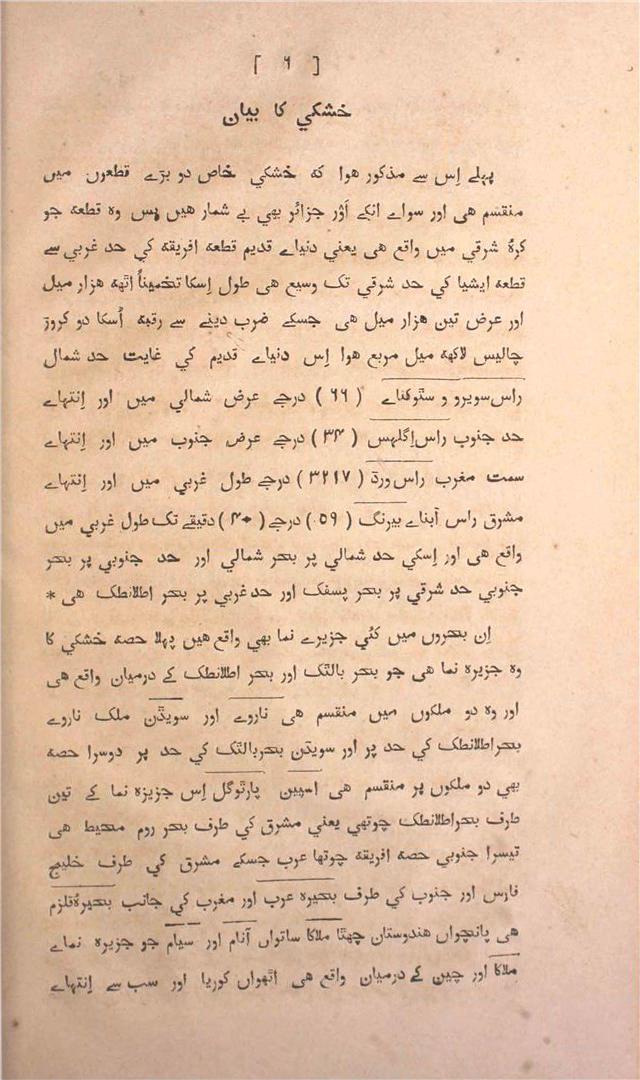 [ ٦ ]
خشكي كا بيان
پہلے اِس سے مذكور ہوا كہ خشكي خاص دو بڑے قطعوں ميں
منقسم ہی اور سواے انكے اَوْر جزائر بھي بے شمار ہيں پس وہ قطعہ جو
كرۂ شرقي ميں واقع ہی يعني دنياے قديم قطعہ افريقہ كي حد غربي سے
قطعہ ايشيا كي حد شرقي تک وسيع ہی طول اِسكا تخميناً اٹھہ ہزار ميل
اور عرض تين ہزار ميل ہی جسكے ضرب دينے سے رقبہ اُسكا دو كروڑ
چاليس لاكھہ ميل مربع ہوا اِس دنياے قديم كي غايت حد شمال
راس سويرو و سٹوكناے ( ٦٦ ) درجے عرض شمالي ميں اور اِنتہاے
حد جنوب راس اِگلہس ( ٣۴ ) درجے عرض جنوب ميں اور اِنتہاے
سمت مغرب راس ورڈ ( ٣٢١٧ ) درجے طول غربي ميں اور اِنتہاے
مشرق راس آبناے بيرنگ ( ٥٩ ) درجے ( ۴٠ ) دقيقے تک طول غربي ميں
واقع ہی اور اِسكي حد شمالي پر بحر شمالي اور حد جنوبي پر بحر
جنوبي حد شرقي پر بحر پسفک اور حد غربي پر بحر اطلانطک ہی *
اِن بحروں ميں كئي جزيرے نما بھي واقع ہيں پہلا حصہ خشكي كا
وہ جزيرہ نما ہی جو بحر بالٹک اور بحر اطلانطک كے درميان واقع ہی
اور وہ دو ملكوں ميں منقسم ہی ناروے اور سويڈن ملک ناروے
بحر اطلانطک كي حد پر اور سويڈن بحر بالٹک كي حد پر دوسرا حصہ
بھي دو ملكوں پر منقسم ہی اسپين پارٹوگل اِس جزيزہ نما كے تين
طرف بحر اطلانطک چوتھي يعني مشرق كي طرف بحر روم محيط ہی
تيسرا جنوبي حصہ افريقہ چوتھا عرب جسكے مشرق كي طرف خليج
فارس اور جنوب كي طرف بحيرہ عرب اور مغرب كي جانب بحيرۂ قلزم
ہی پانچواں ہندوستان چھٹا ملاكا ساتواں آنام اور سيام جو جزيرہ نماے
ملاكا اور چين كے درميان واقع ہی اٹھواں كوريا اور سب سے اِنتہاے